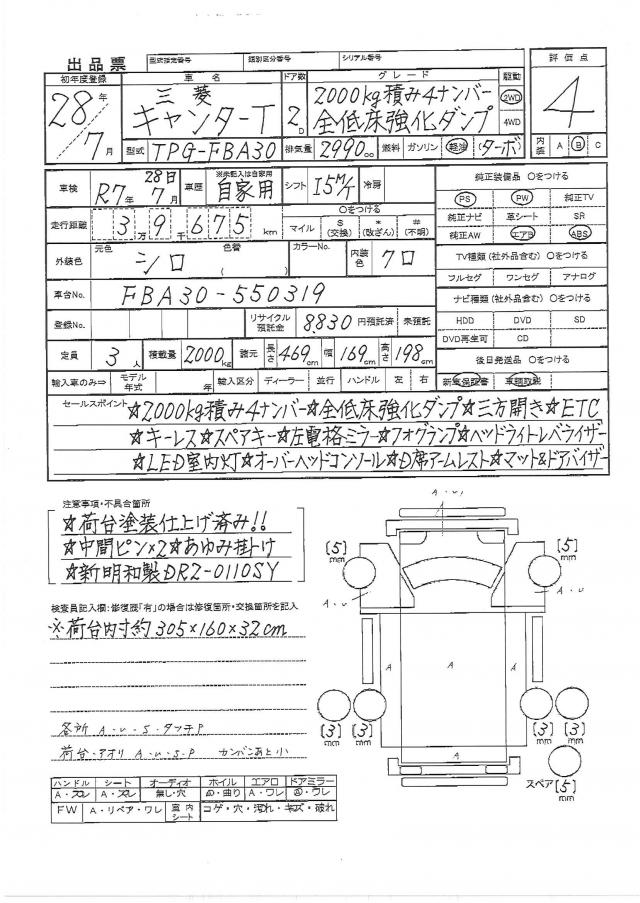 出品票 型式指定番号 類別区分番号 シリアル番号
初年度登録 車名 ドア数 グレード 駆動 評価点
28年 三菱 2D 2000kg積み4ナンバー 2WD 4
7月 キャンターT 全低床強化ダンプ 4WD
型式 TPG-FBA30 排気量 2990cc 燃料 ガソリン 軽油 (ターボ) 内装 A B C
車検 R7年 28日 7月 車歴 ※未記入は自家用 自家用 シフト I5M/T 冷房 純正装備品 〇をつける
PS PW 純正TV
走行距離 3万9千675km 〇をつける マイル $(交換) *(改ざん) #(不明) 純正ナビ 革シート SR
純正AW エアB ABS
外装色 元色 シロ 色替 カラーNo. 内装色 クロ TV種類(社外品含む) 〇をつける
フルセグ ワンセグ アナログ
車台No. FBA30-550319 ナビ種類(社外品含む) 〇をつける
登録No. リサイクル預託金 8830円預託済 未預託 HDD DVD SD
DVD再生可 CD
定員 3人 積載量 2000kg 諸元 長さ469cm 幅169cm 高さ198cm 後日発送品 〇をつける
輸入車のみ⇒ モデル年式 年 輸入区分 ディーラー 並行 ハンドル 左 右 新車保証書 車輌取説
セールスポイント ☆2000kg積み4ナンバー☆全低床強化ダンプ☆三方開き☆ETC
☆キーレス☆スペアキー☆左電格ミラー☆フォグランプ☆ヘッドライトレベライザー
☆LED室内灯☆オーバーヘッドコンソール☆D席アームレスト☆マット&ドアバイザー
注意事項・不具合箇所
☆荷台塗装仕上げ済み!!
☆中間ピン×2☆あゆみ掛け
☆新明和製DR2-0110SY
検査員記入欄:修復歴「有」の場合は修復箇所・交換箇所を記入
※荷台内寸約305×160×32cm
各所 A・U・S・タッチP
荷台・アオリ A・U・S・P カンバンあと小
ハンドル シート オーディオ ホイル エアロ ドアミラー
A・スレ A・スレ 無し・穴 A・曲り A・ワレ A・ワレ
FW A・リペア・ワレ 室内シート コゲ・穴・汚れ・キズ・破れ
A・U
[5]mm [5]mm
A・U A・U
A A A
[3]mm [3]mm [3]mm [3]mm
A
スペア[5]mm